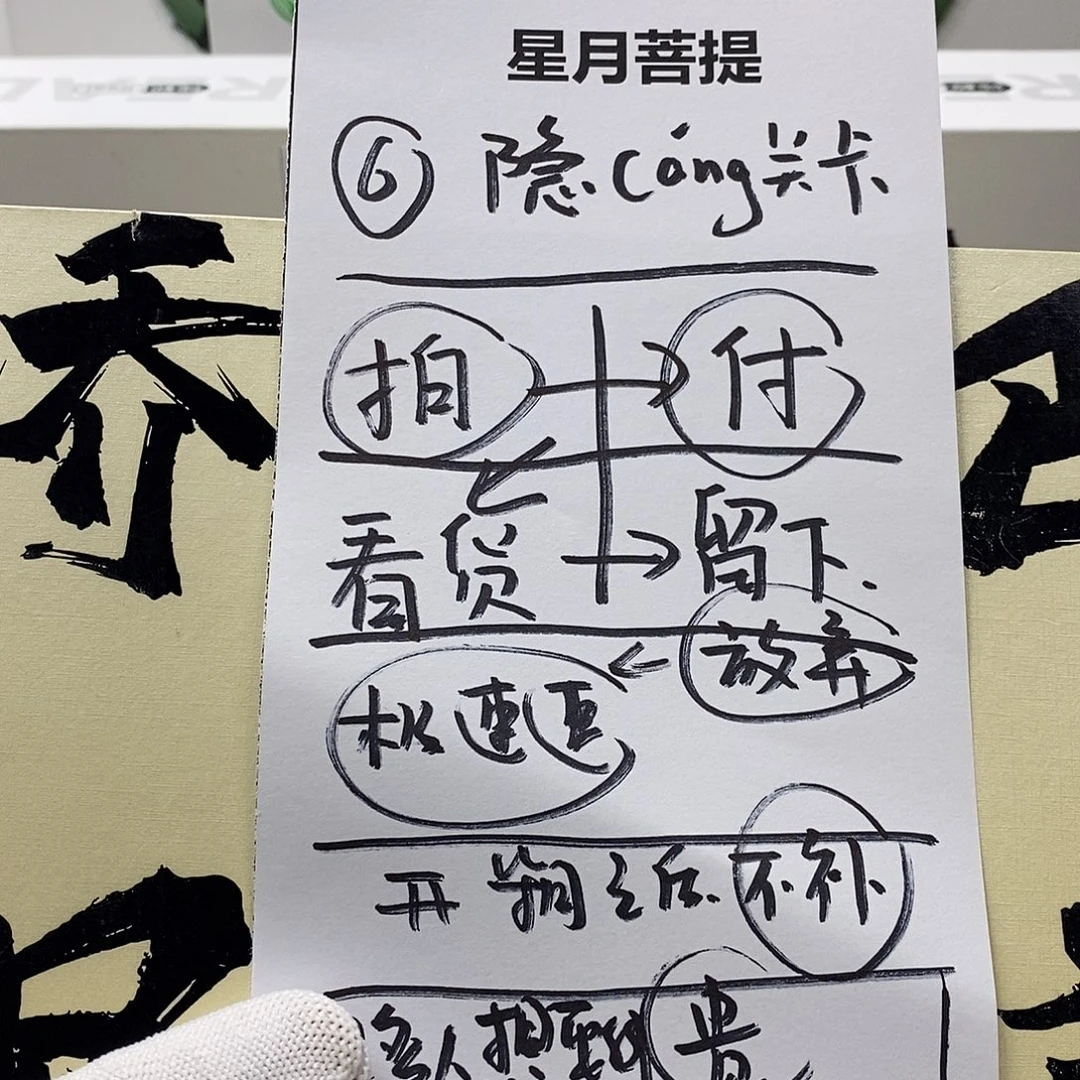 星月菩提
⑥ 隐cáng关卡
拍 → 付
看货 → 留下.
← 放弃
极速退
开 之后 不补
多人拍 贵